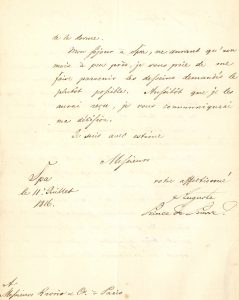 de le donner.
Mon séjour à Spa, ne durant qu'un
mois à peu près, je vous prie de me
faire parvenir les desseins demandés le
plutôt possible. Aussitôt que je les
aurai reçu, je vous communiquerai
ma décision.
Je suis avec estime
Messieurs
Spa
le 11 Juillet
1816.
votre affectionné
Auguste
Prince de Prusse
A
Messieurs & Co. à Paris